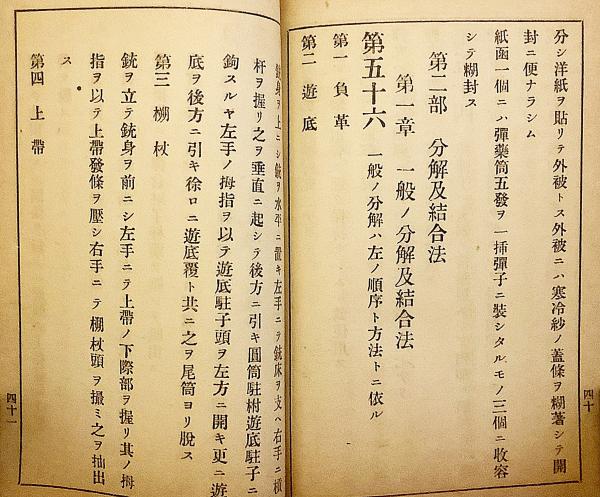 分シ洋紙ヲ貼リテ外被トス外被ニハ寒冷紗ノ蓋條ヲ糊著シテ開
封ニ便ナラシム
紙函一個ニハ彈藥筒五發ヲ一揷彈子ニ裝シタルモノ三個ニ收容
シテ糊封ス
第二部　分解及結合法
第一章　一般ノ分解及結合法
第五十六　一般ノ分解ハ左ノ順序ト方法トニ依ル
第一　負革
第二　遊底
四十
銃身ヲ上ニシ銃ヲ水平ニ置キ左手ニテ銃床ヲ支ヘ右手ニ槓
杆ヲ握リ之ヲ垂直ニ起シテ後方ニ引キ圓筒駐柎遊底駐子ニ
鉤スルヤ左手ノ拇指ヲ以テ遊底駐子頭ヲ左方ニ開キ更ニ遊
底ヲ後方ニ引キ徐ロニ遊底覆ト共ニ之ヲ尾筒ヨリ脫ス
第三　棚杖
銃ヲ立テ銃身ヲ前ニシ左手ニテ上帶ノ下際部ヲ握リ其ノ拇
指ヲ以テ上帶發條ヲ壓シ右手ニテ棚杖頭ヲ撮ミ之ヲ抽出
ス
第四　上帶
四十一